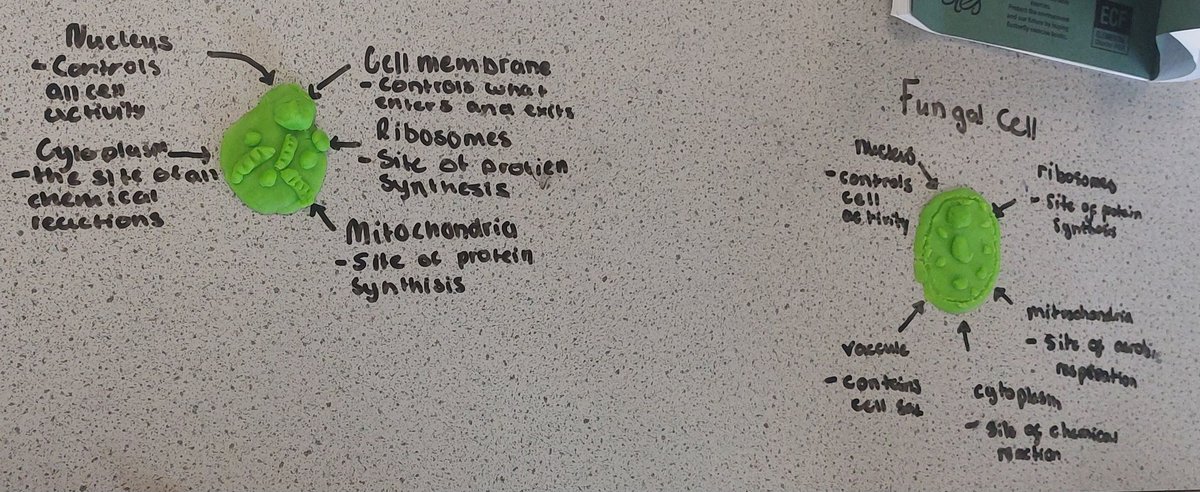 Nucleus
- Controls
all cell
activity
Cytoplasm
- the site of all
chemical
reactions
Cell membrane
- Controls what
enters and exits
Ribosomes
- Site of protien
synthesis
Mitochondria
- Site of protein
synthisis
Fungal Cell
nucleus
- controls
cell
activity
ribosomes
- Site of protein
synthesis
mitochondria
- Site of aerobic
respiration
vacuole
- contains
cell sap
cytoplasm
- site of chemical
reaction
ECF